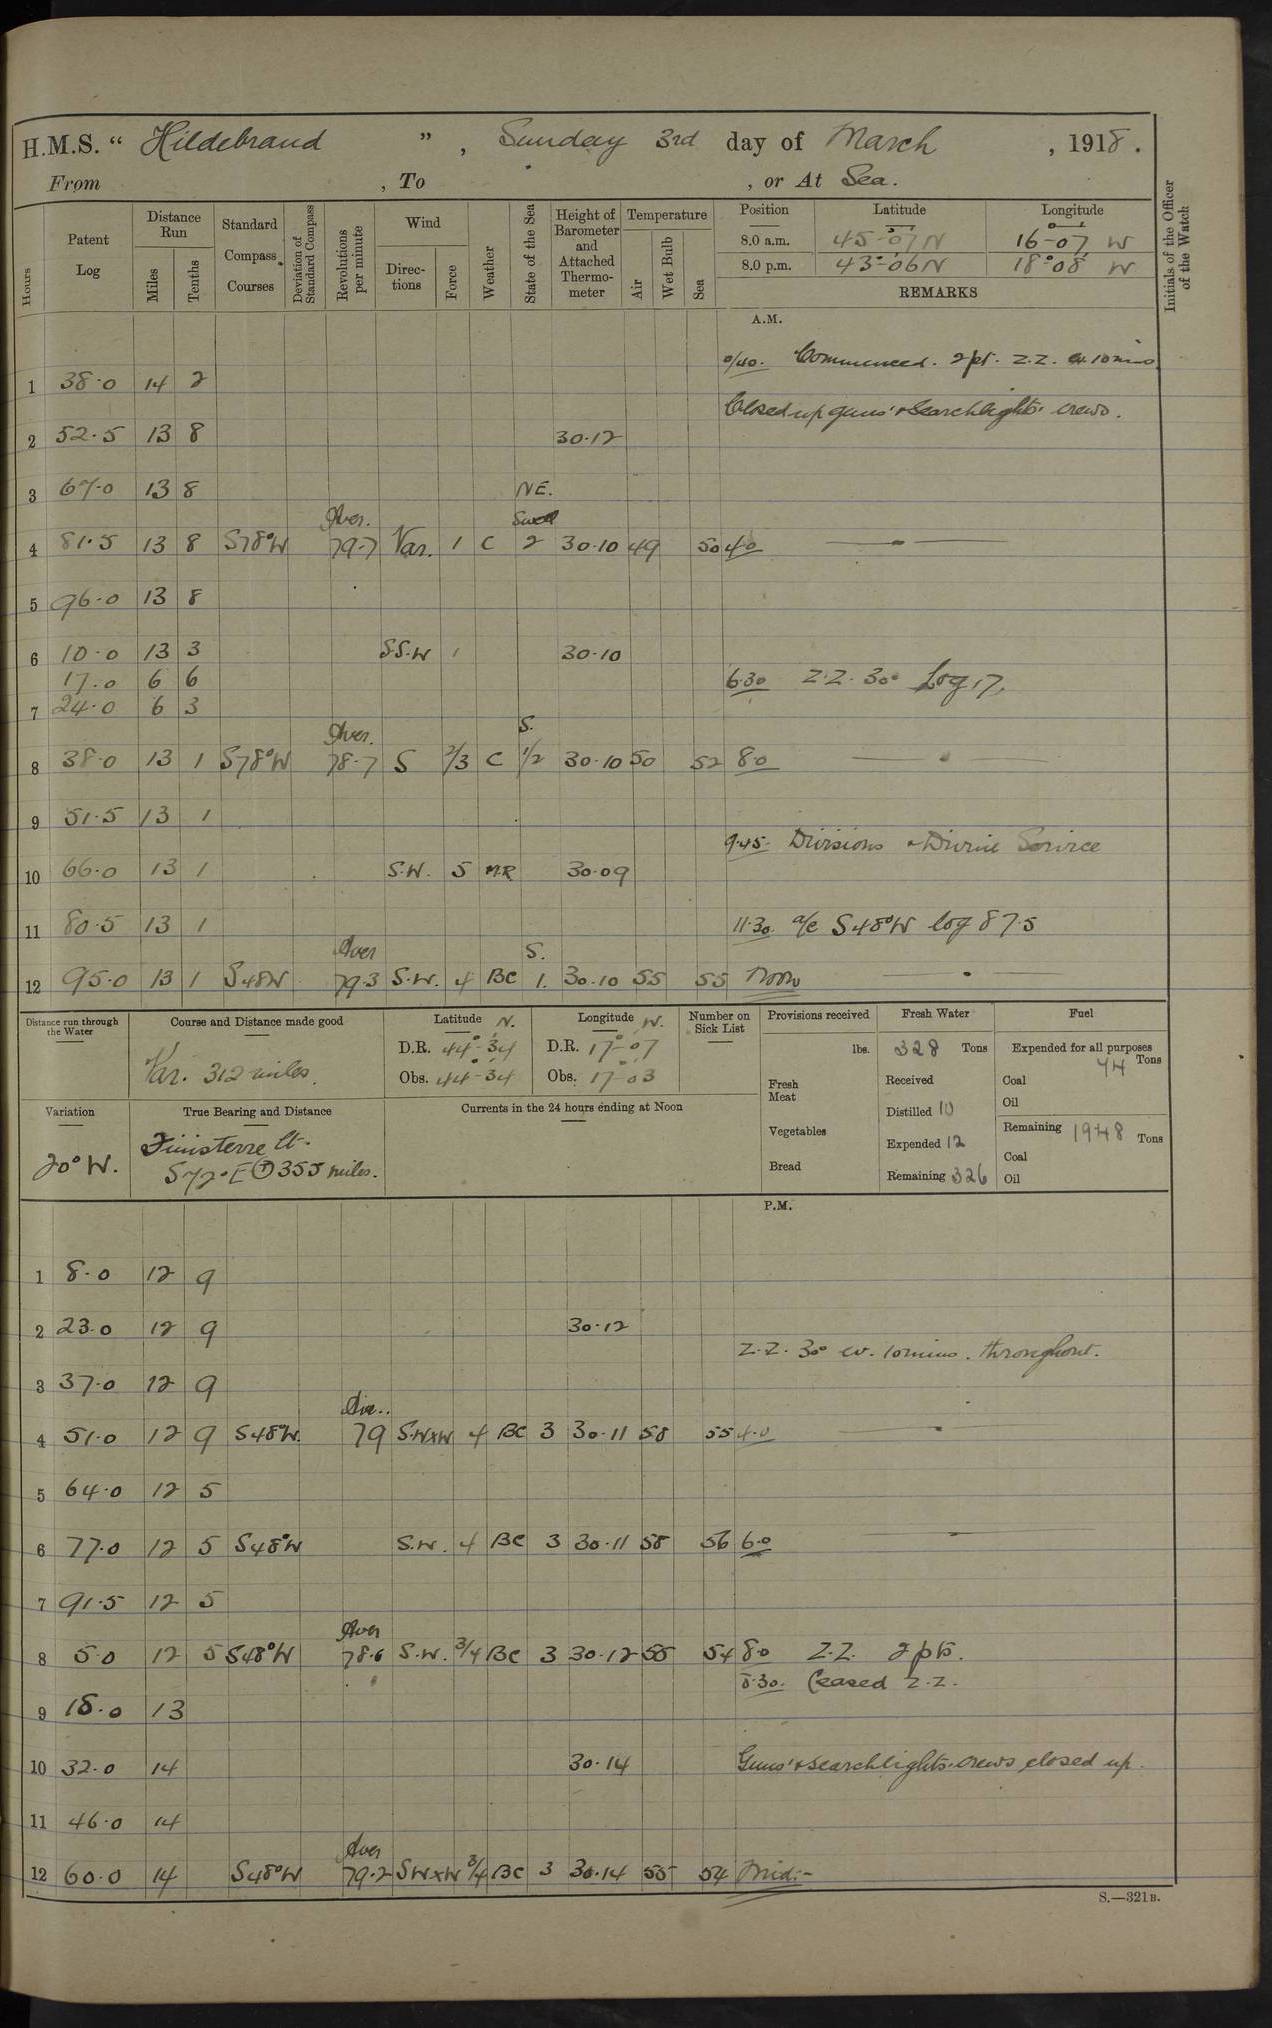 H.M.S. “ Hildebrand ”, Sunday 3rd day of March, 1918.
From , To , or At Sea.
Hours Patent Log Distance Run Miles Tenths Standard Compass Courses Deviation of Standard Compass Revolutions per minute Wind Directions Force Weather State of the Sea Height of Barometer and Attached Thermometer Temperature Air Wet Bulb Sea Position Latitude Longitude Initials of the Officer of the Watch
8.0 a.m. 45°-07' N 16°-07' W
8.0 p.m. 43°-06' N 18°-08' W
REMARKS
A.M.
0/40. Commenced. 2pt. Z.Z. ev. 10 mins
1 38.0 14 2
Closed up guns' & Searchlights' crews.
2 52.5 13 8 30.12
3 67.0 13 8 NE.
Aver. Swell
4 81.5 13 8 S78°W 79.7 Var. 1 C 2 30.10 49 50 4.0
5 96.0 13 8
6 10.0 13 3 S.S.W 1 30.10
17.0 6 6 6.30 Z.Z. 30° Log 17.
7 24.0 6 3
Aver. S.
8 38.0 13 1 S78°W 78.7 S 2/3 C 1/2 30.10 50 52 8.0
9 51.5 13 1
9.45. Divisions & Divine Service
10 66.0 13 1 S.W. 5 30.09
11 80.5 13 1 11.30. a/c S48°W log 87.5
Aver S.
12 95.0 13 1 S48W 79.3 S.W. 4 BC 1. 30.10 55 55 Noon
Distance run through the Water Course and Distance made good Latitude N. Longitude W. Number on Sick List Provisions received Fresh Water Fuel
Var. 312 miles.
D.R. 44°-34' D.R. 17°-07'
Obs. 44°-34' Obs. 17°-03'
lbs. 328 Tons Expended for all purposes
74 Tons
Fresh Meat Received Coal
Oil
Variation True Bearing and Distance Currents in the 24 hours ending at Noon
Distilled 10
Vegetables Expended 12 Remaining 1948 Tons
Coal
Bread Remaining 326 Oil
20° W. Finisterre Lt.
S72°E 355 miles.
P.M.
1 8.0 12 9
2 23.0 12 9 30.12
Z.Z. 30° ev. 10 mins. throughout.
3 37.0 12 9
Aver.
4 51.0 12 9 S48°W. 79 S.WxW 4 BC 3 30.11 58 55 4.0
5 64.0 12 5
6 77.0 12 5 S48°W S.W. 4 BC 3 30.11 58 56 6.0
7 91.5 12 5
Aver
8 5.0 12 5 S48°W 78.6 S.W. 3/4 BC 3 30.12 55 54 8.0 Z.Z. 2pts.
8.30. Ceased Z.Z.
9 18.0 13
10 32.0 14 30.14 Guns' & searchlights' crews closed up.
11 46.0 14
Aver
12 60.0 14 S48°W 79.2 SWxW 3/4 BC 3 30.14 55 54 Mid:-
S.—321B.